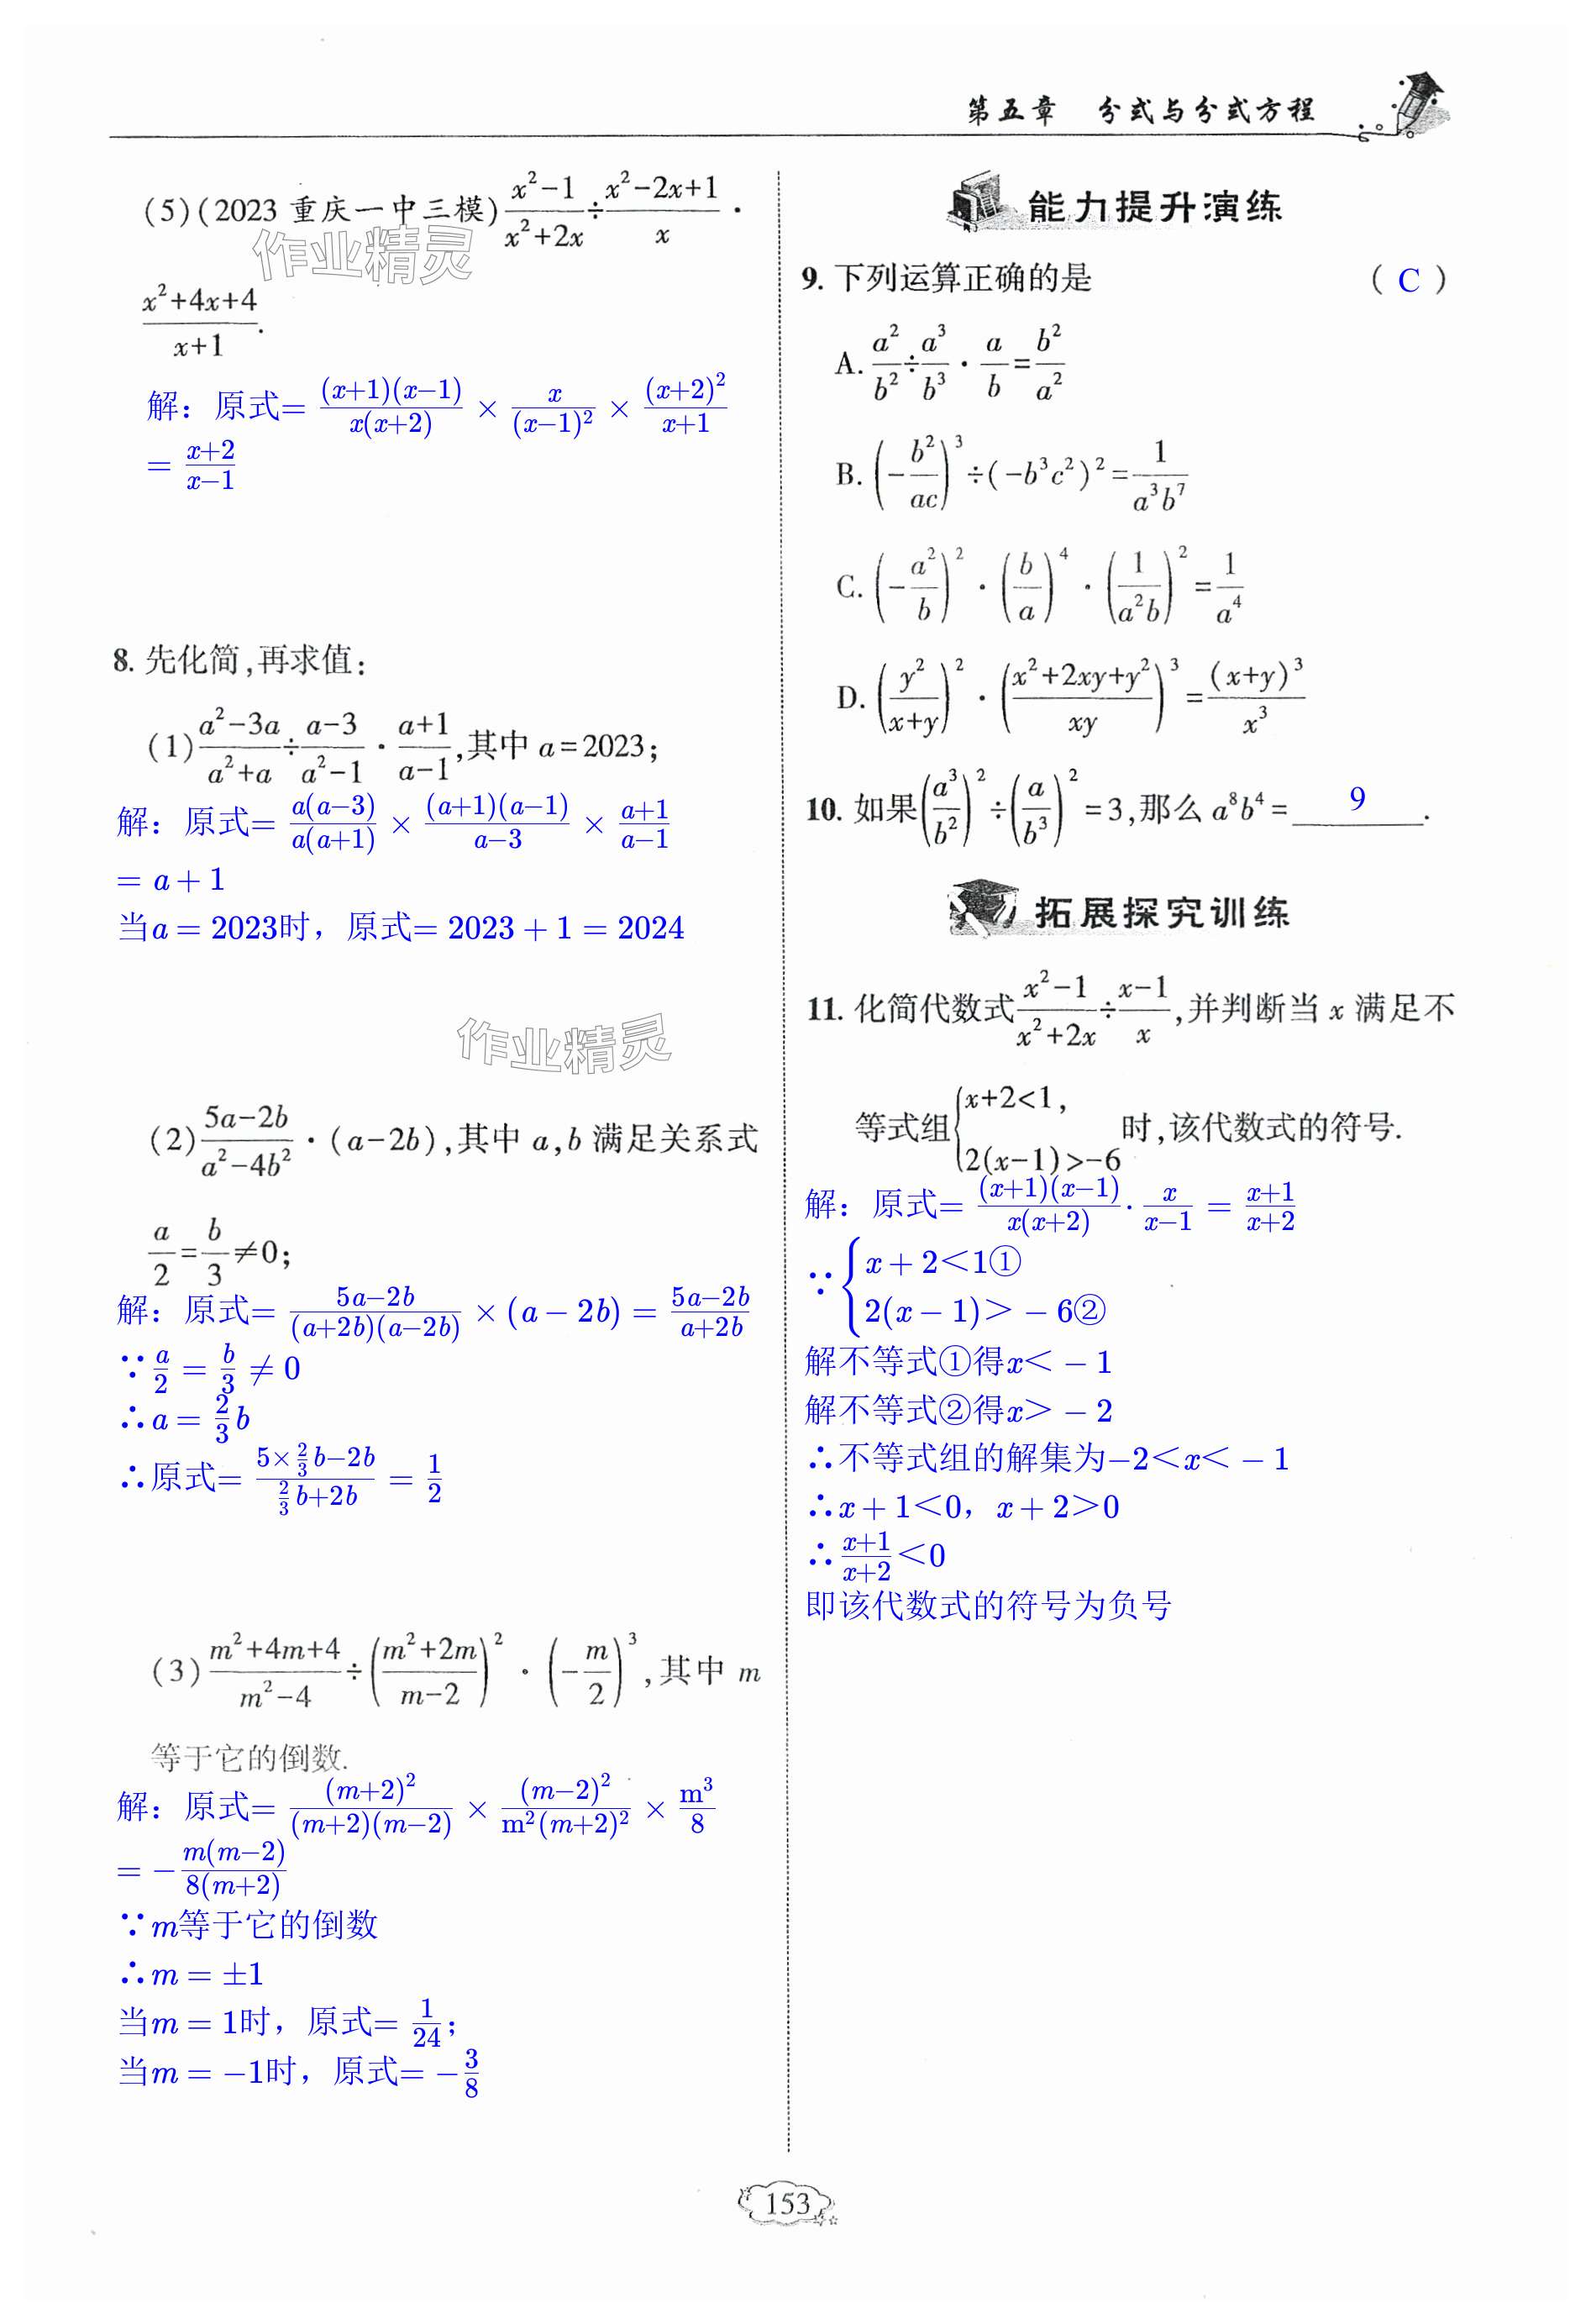 第五章 分式与分式方程
(5)(2023 重庆一中三模)\frac{x²-1}{x²+2x}÷\frac{x²-2x+1}{x}·
\frac{x²+4x+4}{x+1}.
作业精灵
解：原式= \frac{(x+1)(x-1)}{x(x+2)} × \frac{x}{(x-1)²} × \frac{(x+2)²}{x+1}
= \frac{x+2}{x-1}
8. 先化简,再求值:
(1)\frac{a²-3a}{a²+a}÷\frac{a-3}{a²-1}·\frac{a+1}{a-1},其中 a=2023;
解：原式= \frac{a(a-3)}{a(a+1)} × \frac{(a+1)(a-1)}{a-3} × \frac{a+1}{a-1}
= a + 1
当a = 2023时，原式= 2023 + 1 = 2024
作业精灵
(2)\frac{5a-2b}{a²-4b²}·(a-2b),其中 a,b 满足关系式
\frac{a}{2}=\frac{b}{3}≠0;
解：原式= \frac{5a-2b}{(a+2b)(a-2b)} × (a - 2b) = \frac{5a-2b}{a+2b}
∵\frac{a}{2} = \frac{b}{3} ≠ 0
∴a = \frac{2}{3}b
∴原式= \frac{5×\frac{2}{3}b-2b}{\frac{2}{3}b+2b} = \frac{1}{2}
(3)\frac{m²+4m+4}{m²-4}÷(\frac{m²+2m}{m-2})²·(-\frac{m}{2})³,其中 m
等于它的倒数.
解：原式= \frac{(m+2)²}{(m+2)(m-2)} × \frac{(m-2)²}{m²(m+2)²} × \frac{m³}{8}
= -\frac{m(m-2)}{8(m+2)}
∵m等于它的倒数
∴m = ±1
当m = 1时，原式= \frac{1}{24}；
当m = -1时，原式= -\frac{3}{8}
能力提升演练
9. 下列运算正确的是 ( C )
A. \frac{a²}{b²}÷\frac{a³}{b³}·\frac{a}{b}=\frac{b²}{a²}
B. (-\frac{b²}{ac})³÷(-b³c²)²=\frac{1}{a³b⁷}
C. (-\frac{a²}{b})²·(\frac{b}{a})⁴·(\frac{1}{a²b})²=\frac{1}{a⁴}
D. (\frac{y²}{x+y})²·(\frac{x²+2xy+y²}{xy})³=\frac{(x+y)³}{x³}
10. 如果(\frac{a³}{b²})²÷(\frac{a}{b³})²=3,那么 a⁸b⁴= 9 .
拓展探究训练
11. 化简代数式\frac{x²-1}{x²+2x}÷\frac{x-1}{x},并判断当 x 满足不
等式组{x+2<1, 2(x-1)>-6 时,该代数式的符号.
解：原式= \frac{(x+1)(x-1)}{x(x+2)}·\frac{x}{x-1} = \frac{x+1}{x+2}
∵{x + 2<1①
2(x - 1)> - 6②
解不等式①得x< - 1
解不等式②得x> - 2
∴不等式组的解集为-2<x< - 1
∴x + 1<0，x + 2>0
∴\frac{x+1}{x+2}<0
即该代数式的符号为负号
153